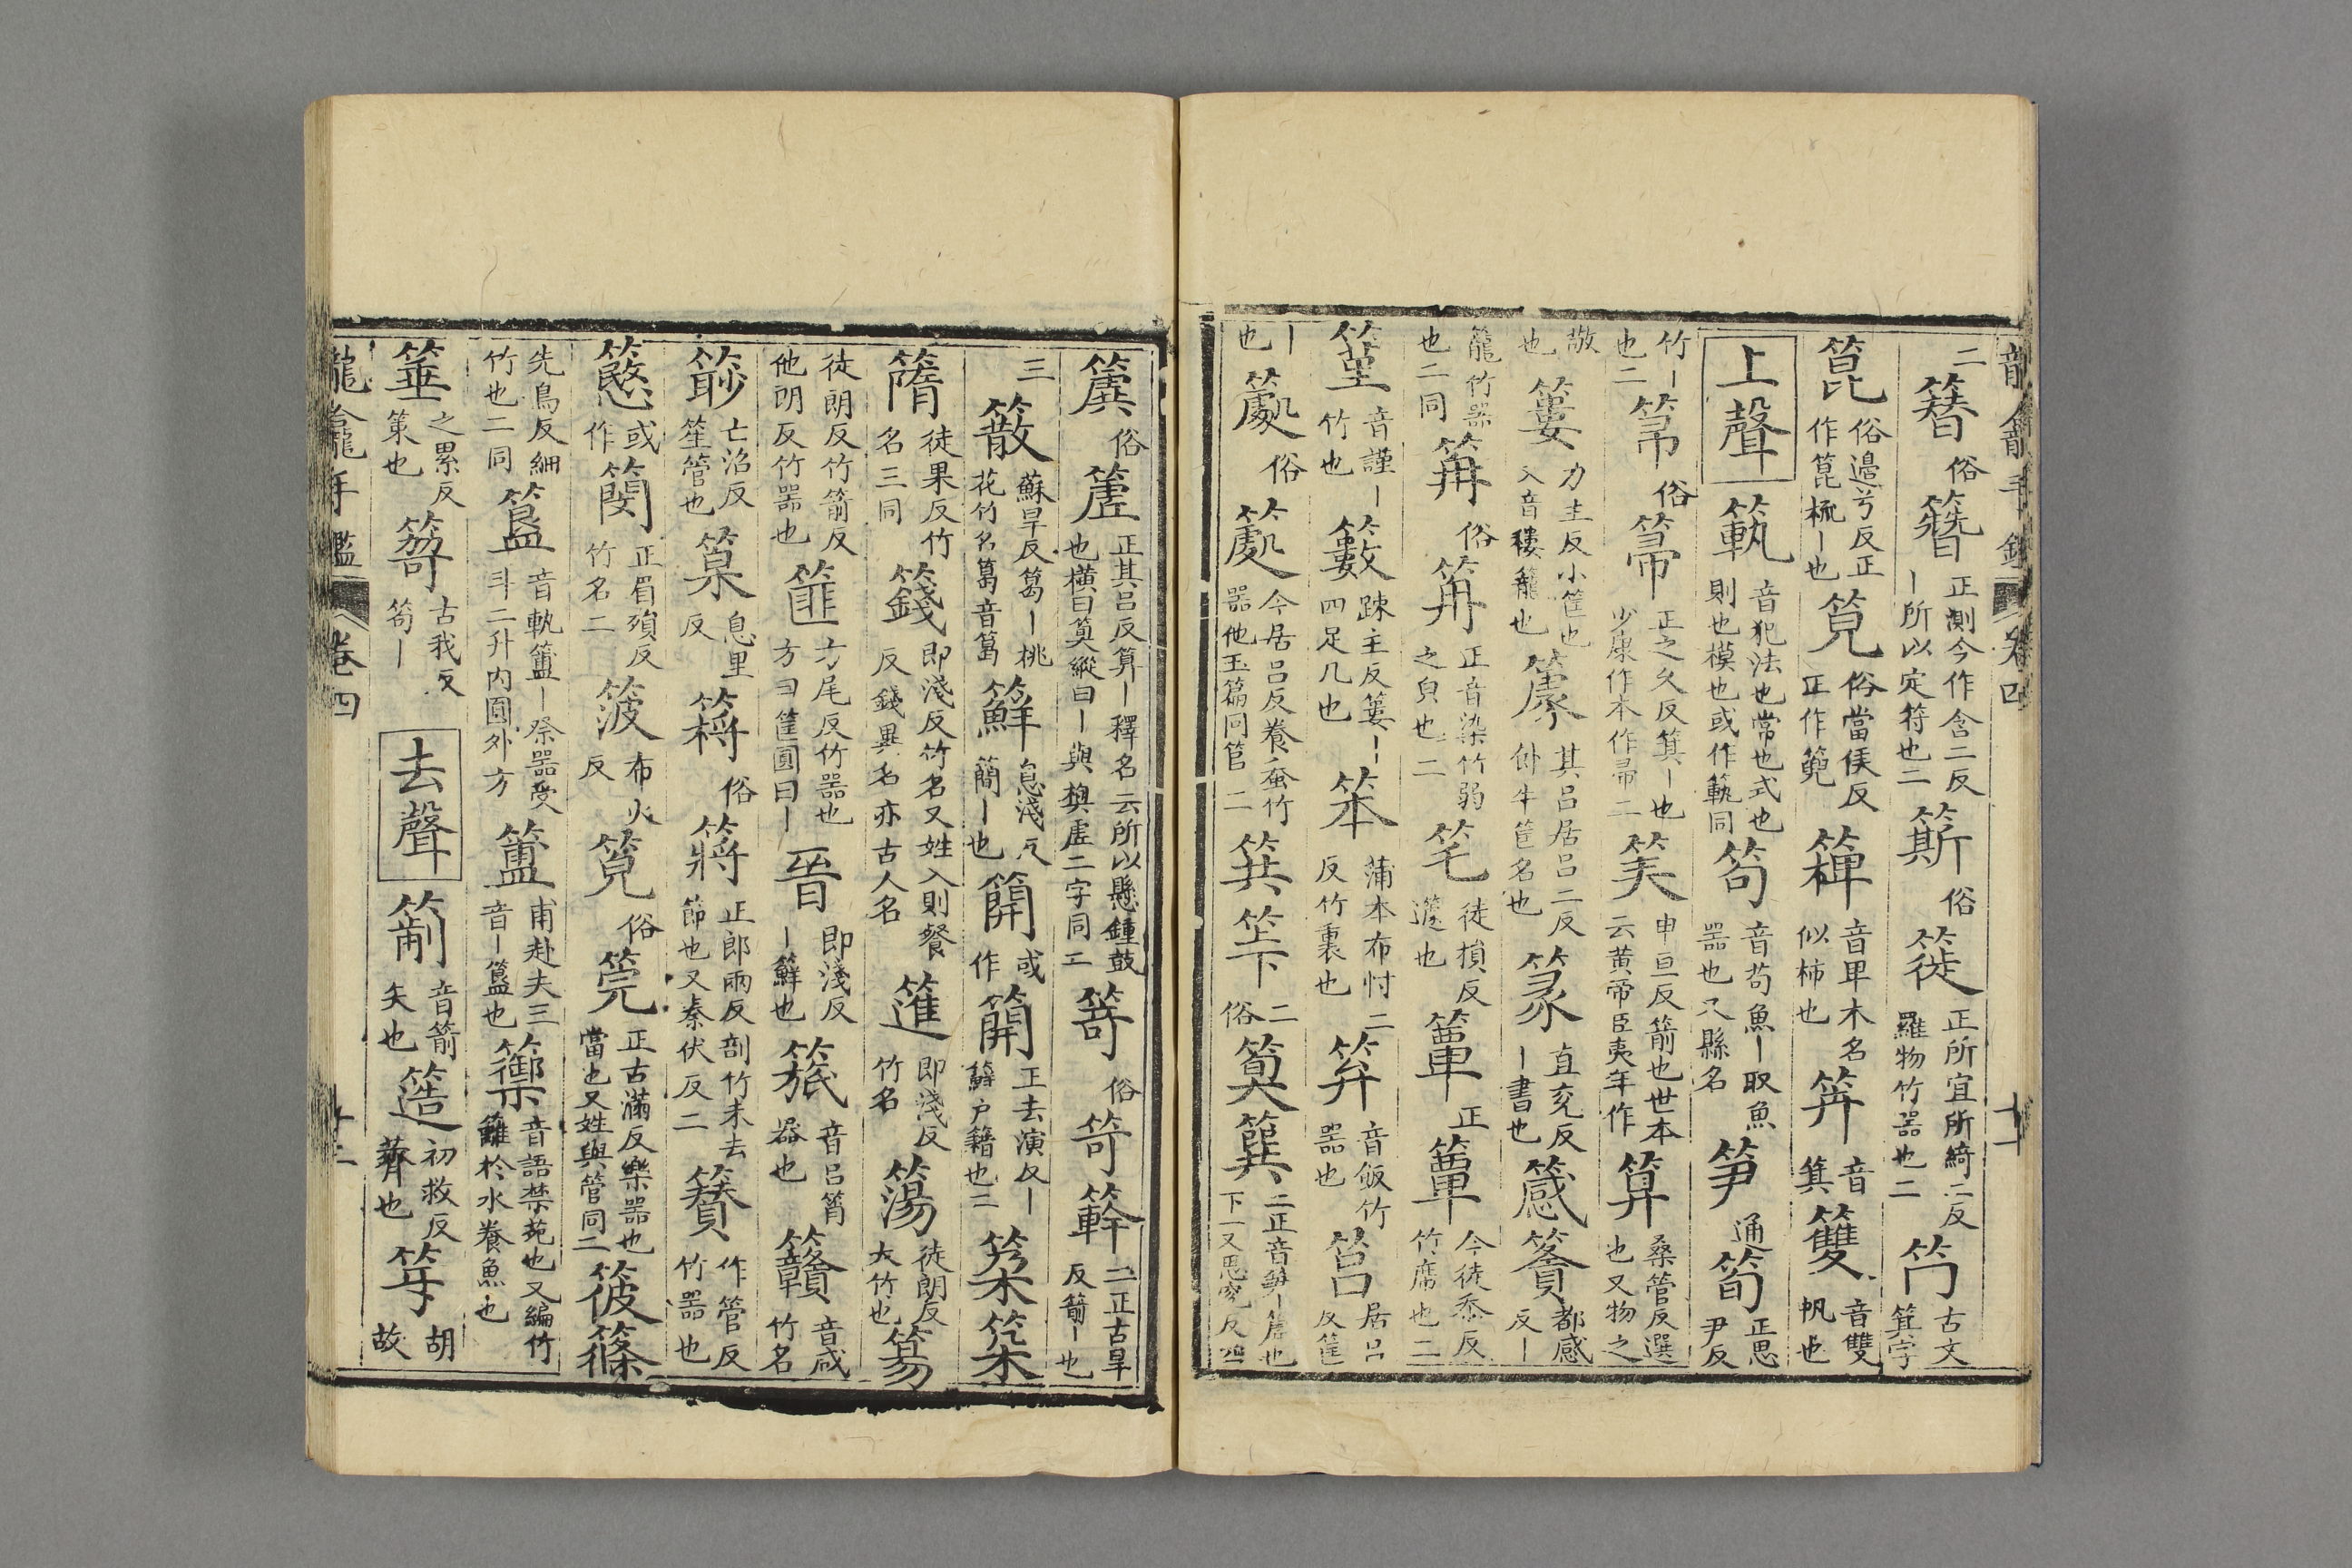 龍龕手鑑 卷四 十一
二簪俗簪正測今作含二反｜所以定符也二簛俗簁正所宜所綺二反羅物竹器也二𥫗古文箕字
箆俗邉兮反正作箆梳｜也筧俗當侯反正作篼箄音卑木名似柿也笄音箕䉶音雙帆也
上聲 𥮅音犯法也常也式也則也模也或作範同笱音苟魚｜取魚器也又縣名笋通筍正思尹反
竹｜也二帚俗箒正之久反箕｜也少康作本作帚二笑申旦反箭也世本云黄帝臣夷牟作算桑管反選也又物之
敬也簍力主反小筐也又音䅹籠也篆其呂居呂二反飤牛筐名也篆直兖反｜書也簻都感反｜
籠竹器也二同苒俗苒正音染竹弱之皃也二笔徒損反籧也簞正簟今徒忝反竹席也二
䈽音謹｜竹也籔踈主反簍｜四足几也笨蒲本布忖二反竹裏也笲音飯竹器也筥居呂反筐
｜也簴俗簴今居呂反養蚕竹器他玉篇同筥二筭笇二俗䇲簨二正音筭｜簴也下一又思兖反四
簴俗簴正其呂反筭｜釋名云所以懸鍾鼓也横曰筭縱曰｜與㯫虡二字同二笴俗笴簳二正古旱反箭｜也
三䉈蘇旱反簩｜桃花竹名簩音簩䉳息淺反簡｜也簡或作簡正去演反｜䉳戶籍也二筿筿
䈺徒果反竹名三同籛即淺反竹名又姓入則餐反籛異名亦古人名䇐即淺反竹名簜徒朗反大竹也䈰
徒朗反竹箭反他朗反竹器也篚方尾反竹器也方曰筐圓曰｜䈛即淺反｜䉳也簱音呂筲器也籫音咸竹名
䈃亡沼反笙管也䈡息里反䉃俗䉃正郎兩反剖竹未去節也又秦伏反二籫作管反竹器也
簢或作䈟正眉殞反竹名二簸布火反筦俗筦正古滿反樂器也當也又姓與管同二筱篠
先鳥反細竹也二同簋音軌簠｜祭器受斗二升内圓外方簠甫赴夫三音｜簋也籞音語禁苑也又編竹籬於水養魚也
箠之累反策也笴古我反笱｜ 去聲 箭音箭矢也簉初救反薺也笌胡故
龍龕手鑑 卷四 十二